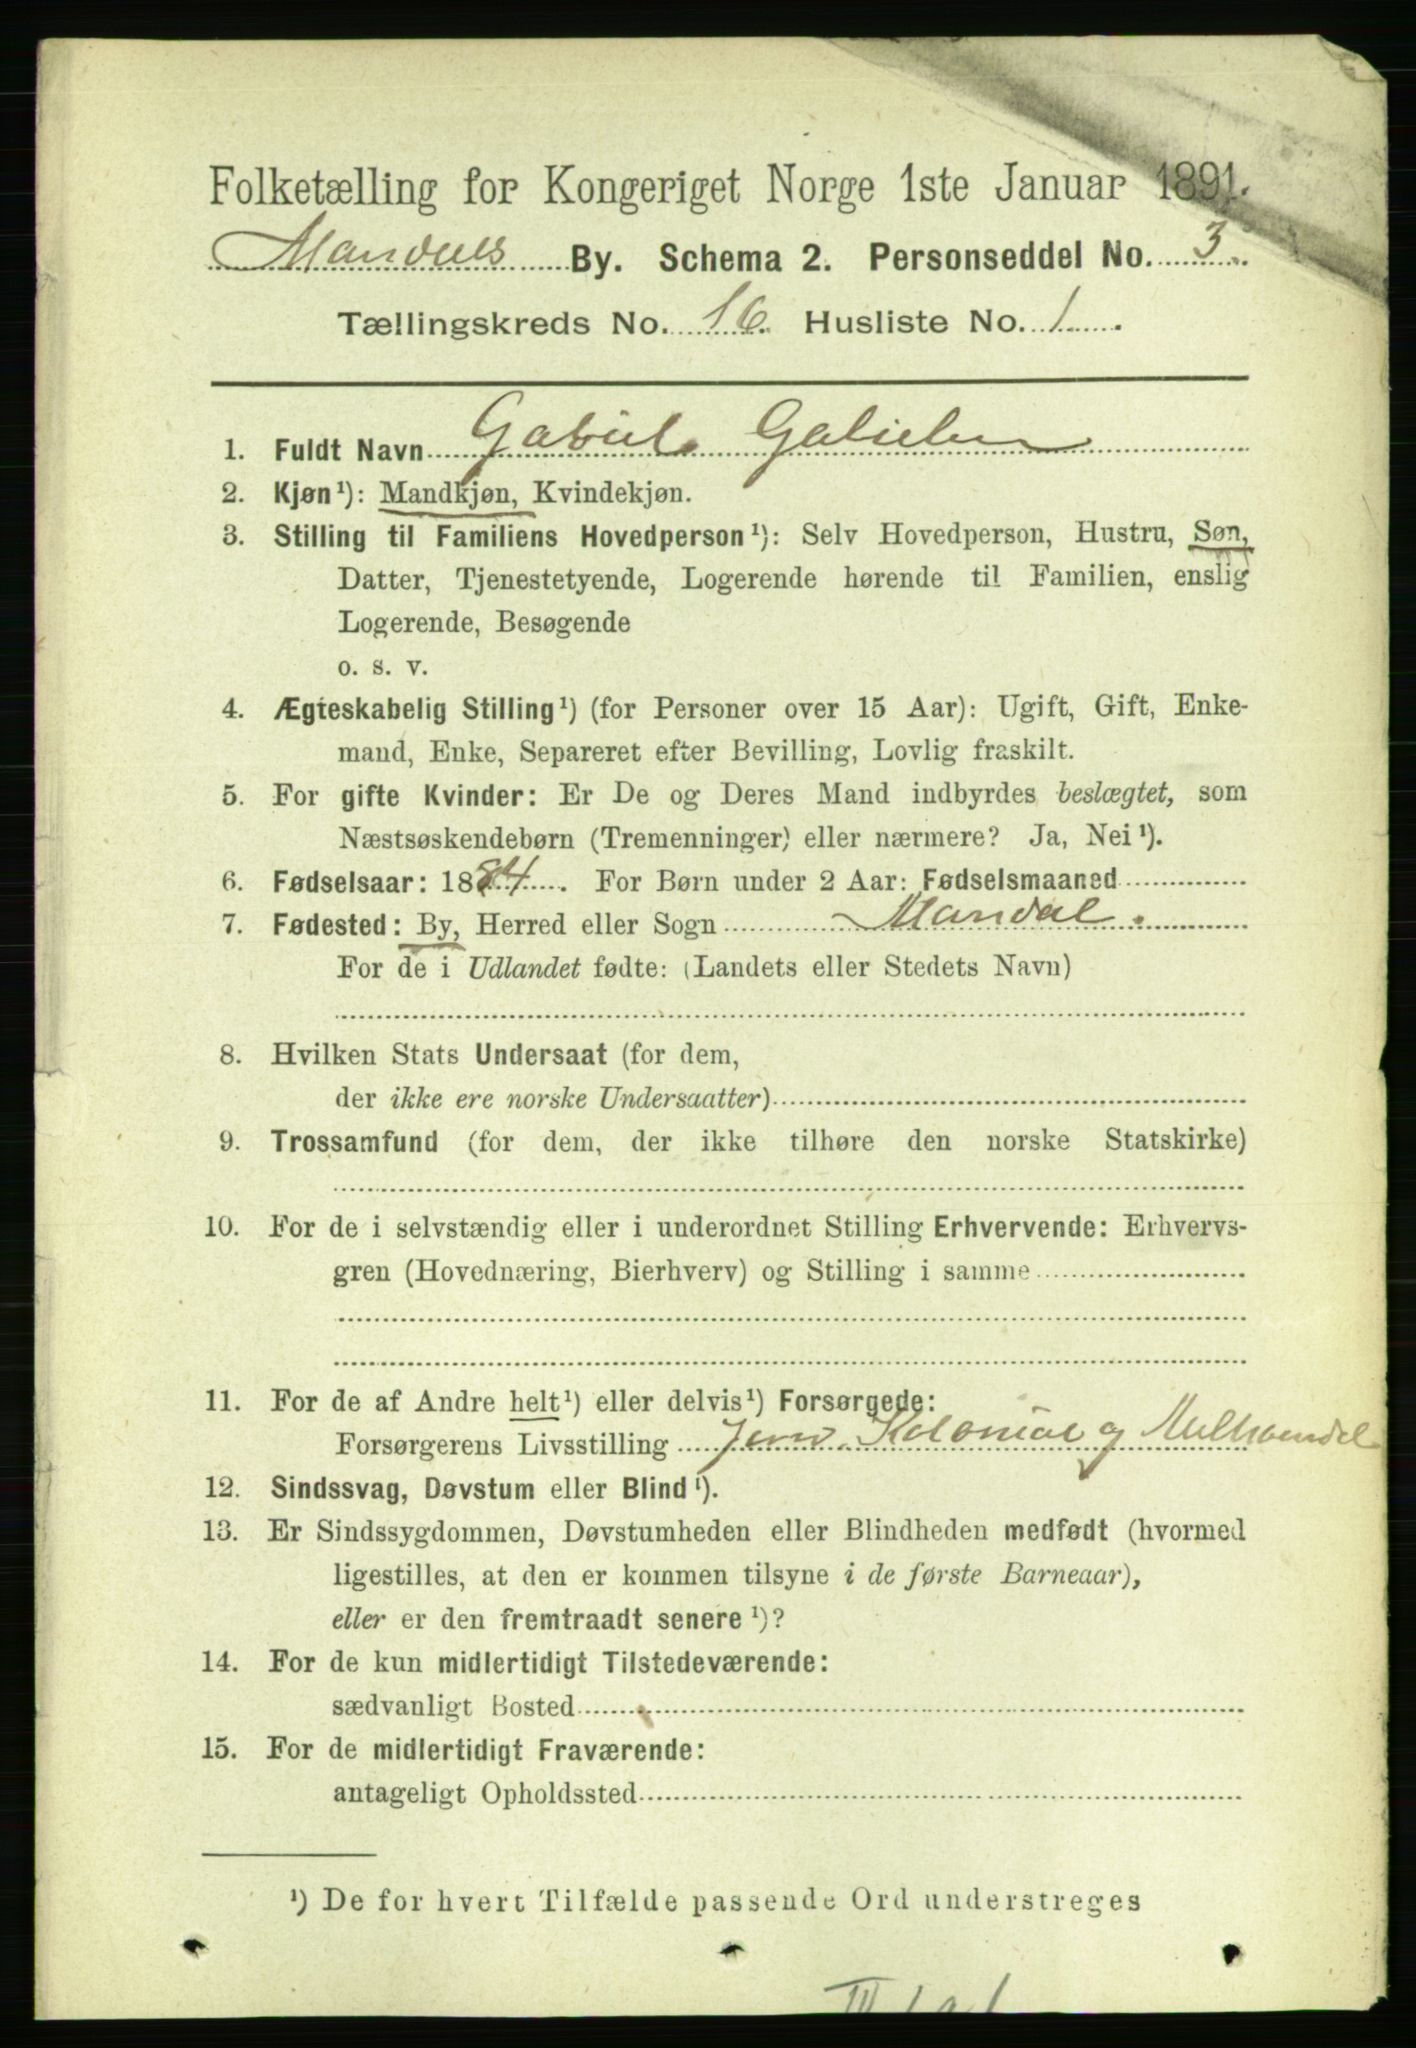 Folketælling for Kongeriget Norge 1ste Januar 1891.
Mandals By. Schema 2. Personseddel No. 3.
Tællingskreds No. 16. Husliste No. 1.
1. Fuldt Navn Gabriel Gabrielsen
2. Kjøn¹): Mandkjøn, Kvindekjøn.
3. Stilling til Familiens Hovedperson¹): Selv Hovedperson, Hustru, Søn,
Datter, Tjenestetyende, Logerende hørende til Familien, enslig
Logerende, Besøgende
o. s. v.
4. Ægteskabelig Stilling¹) (for Personer over 15 Aar): Ugift, Gift, Enke-
mand, Enke, Separeret efter Bevilling, Lovlig fraskilt.
5. For gifte Kvinder: Er De og Deres Mand indbyrdes beslægtet, som
Næstsøskendebørn (Tremenninger) eller nærmere? Ja, Nei¹).
6. Fødselsaar: 1884. For Børn under 2 Aar: Fødselsmaaned
7. Fødested: By, Herred eller Sogn Mandal.
For de i Udlandet fødte: (Landets eller Stedets Navn)
8. Hvilken Stats Undersaat (for dem,
der ikke ere norske Undersaatter)
9. Trossamfund (for dem, der ikke tilhøre den norske Statskirke)
10. For de i selvstændig eller i underordnet Stilling Erhvervende: Erhvervs-
gren (Hovednæring, Bierhverv) og Stilling i samme
11. For de af Andre helt¹) eller delvis¹) Forsørgede:
Forsørgerens Livsstilling Kolonial og
12. Sindssvag, Døvstum eller Blind¹).
13. Er Sindssygdommen, Døvstumheden eller Blindheden medfødt (hvormed
ligestilles, at den er kommen tilsyne i de første Barneaar),
eller er den fremtraadt senere¹)?
14. For de kun midlertidigt Tilstedeværende:
sædvanligt Bosted
15. For de midlertidigt Fraværende:
antageligt Opholdssted
¹) De for hvert Tilfælde passende Ord understreges